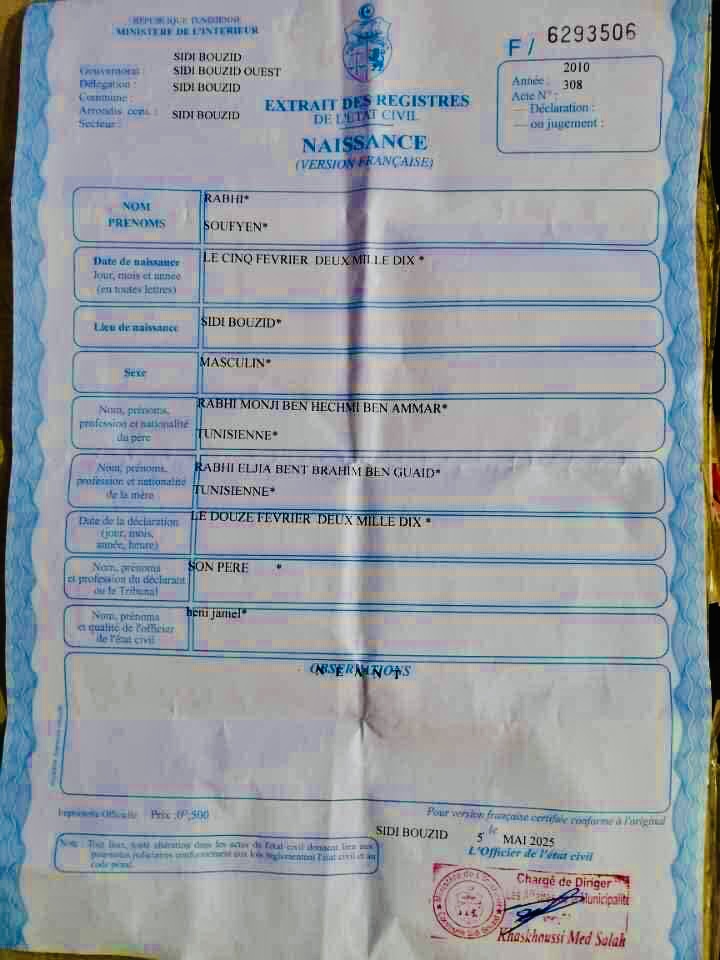 REPUBLIQUE TUNISIENNE
MINISTERE DE L'INTERIEUR
F / 6293506
Gouvernorat : SIDI BOUZID
Délégation : SIDI BOUZID OUEST
Commune : SIDI BOUZID
Arrondis com. :
Secteur : SIDI BOUZID
Année : 2010
Acte N° : 308
— Déclaration :
— ou jugement :
EXTRAIT DES REGISTRES
DE L'ETAT CIVIL
NAISSANCE
(VERSION FRANÇAISE)
NOM RABHI*
PRENOMS SOUFYEN*
Date de naissance LE CINQ FEVRIER DEUX MILLE DIX *
Jour, mois et année
(en toutes lettres)
Lieu de naissance SIDI BOUZID*
Sexe MASCULIN*
Nom, prénoms, RABHI MONJI BEN HECHMI BEN AMMAR*
profession et nationalité
du père TUNISIENNE*
Nom, prénoms, RABHI ELJIA BENT BRAHIM BEN GUAID*
profession et nationalité
de la mère TUNISIENNE*
Date de la déclaration LE DOUZE FEVRIER DEUX MILLE DIX *
(jour, mois,
année, heure)
Nom, prénoms SON PERE *
et profession du déclarant
ou le Tribunal
Nom, prénoms heni jamel*
et qualité de l'officier
de l'état civil
OBSERVATIONS
N E N N T
Imprimerie Officielle Prix :0ᴰ,500
Pour version française certifiée conforme à l'original
SIDI BOUZID le 5 MAI 2025
L'Officier de l'état civil
Note : Tout faux, toute altération dans les actes de l'état civil donnent lieu aux
poursuites judiciaires conformément aux lois réglementent l'état civil et au
code pénal.
Chargé de Diriger
Les Affaires Municipalité
Khaskhoussi Med Salah